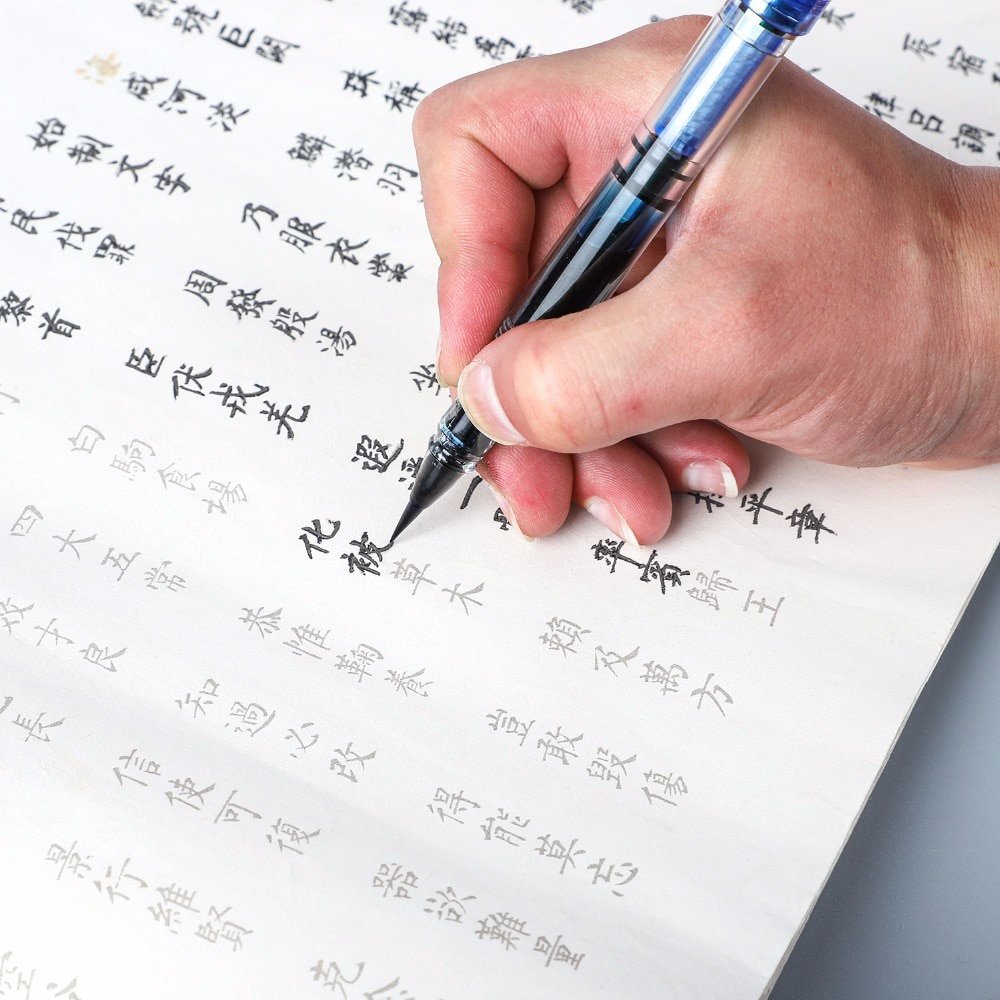 辰宿
律呂調
露結為
號巨闕 珠稱
海咸河淡 鱗潛羽
始制文字 乃服衣裳
民伐罪 周發殷湯 坐 平章
黎首 臣伏戎羌 遐 一 率賓歸王
白駒食場 化被草木 賴及萬方
四大五常 恭惟鞠養 豈敢毀傷
效才良 知過必改 得能莫忘
長 信使可復 器欲難量
景行維賢 克